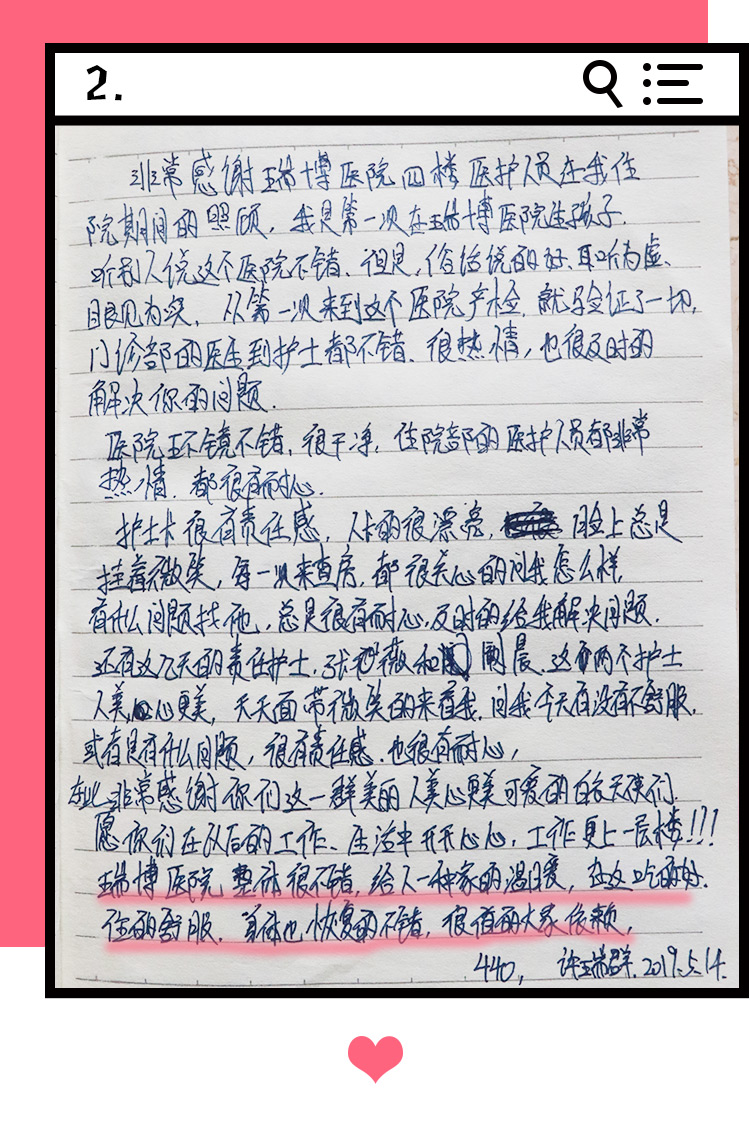 2.
非常感谢瑞博医院四楼医护人员在我住
院期间的照顾，我是第一次在瑞博医院生孩子.
听别人说这个医院不错、但是，俗话说的好、耳听为虚、
眼见为实，从第一次来到这个医院产检，就验证了一切，
门诊部的医生到护士都不错、很热情，也很及时的
解决你的问题.
医院环镜不错，很干净，住院部的医护人员都非常
热情．都很有耐心．
护士长很有责任感，人长的很漂亮，脸上总是
挂着微笑，每一次来查房，都很关心的问我怎么样，
有什么问题找他，总是很有耐心，及时的给我解决问题．
还有这几天的责任护士，张艳薇和晨、这两个护士
人美，心更美，天天面带微笑的来看我，问我今天有没有不舒服，
或者是有什么问题，很有责任感．也很有耐心，
在此非常感谢你们这一群美丽人美心更美可爱的白衣天使们．
愿你们在以后的工作、生活中开开心心，工作更上一层楼!!!
瑞博医院整体很不错，给人一种家的温暖，在这吃的好．
住的舒服，身体也恢复的不错，很值的大家依赖，
440，许瑞群．2019.5.14.